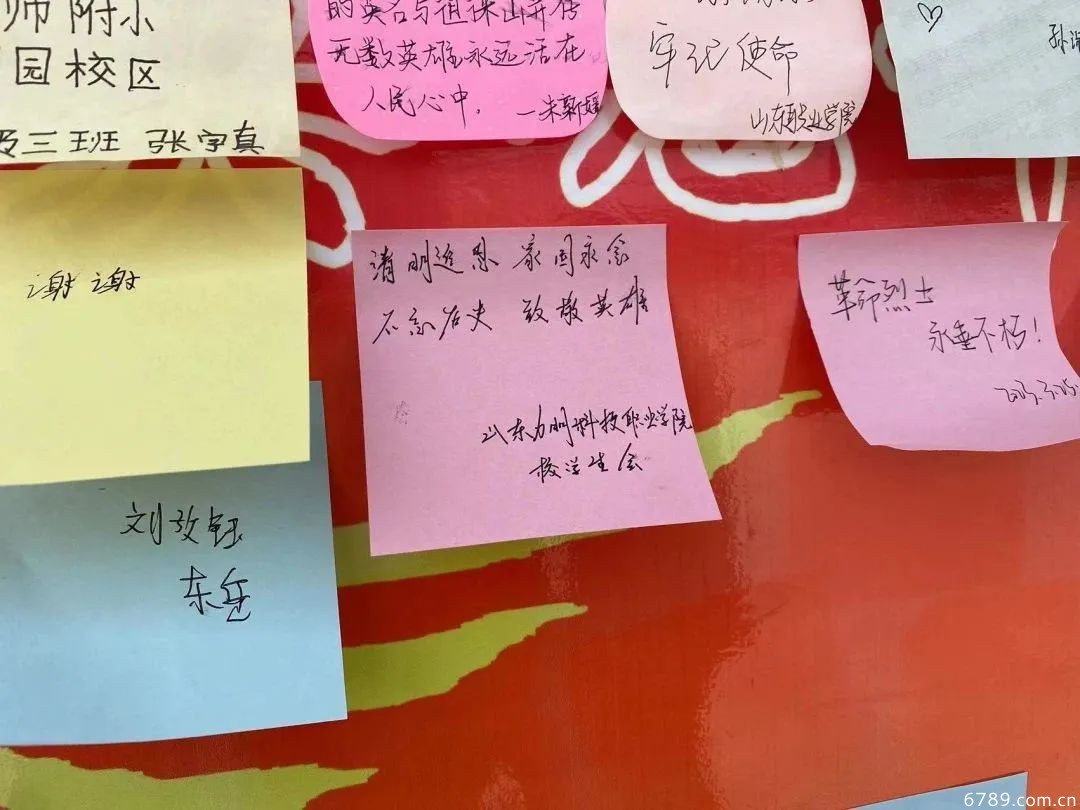 师附小
园校区
三班 张宇真
的英名与祖
无数英雄永远活在
人民心中。
牢记使命
山东职业学院
孙
谢谢
清明追思 家国永念
不忘历史 致敬英雄
山东力明科技职业学院
校学生会
革命烈士
永垂不朽!
刘
东岳
6789.com.cn